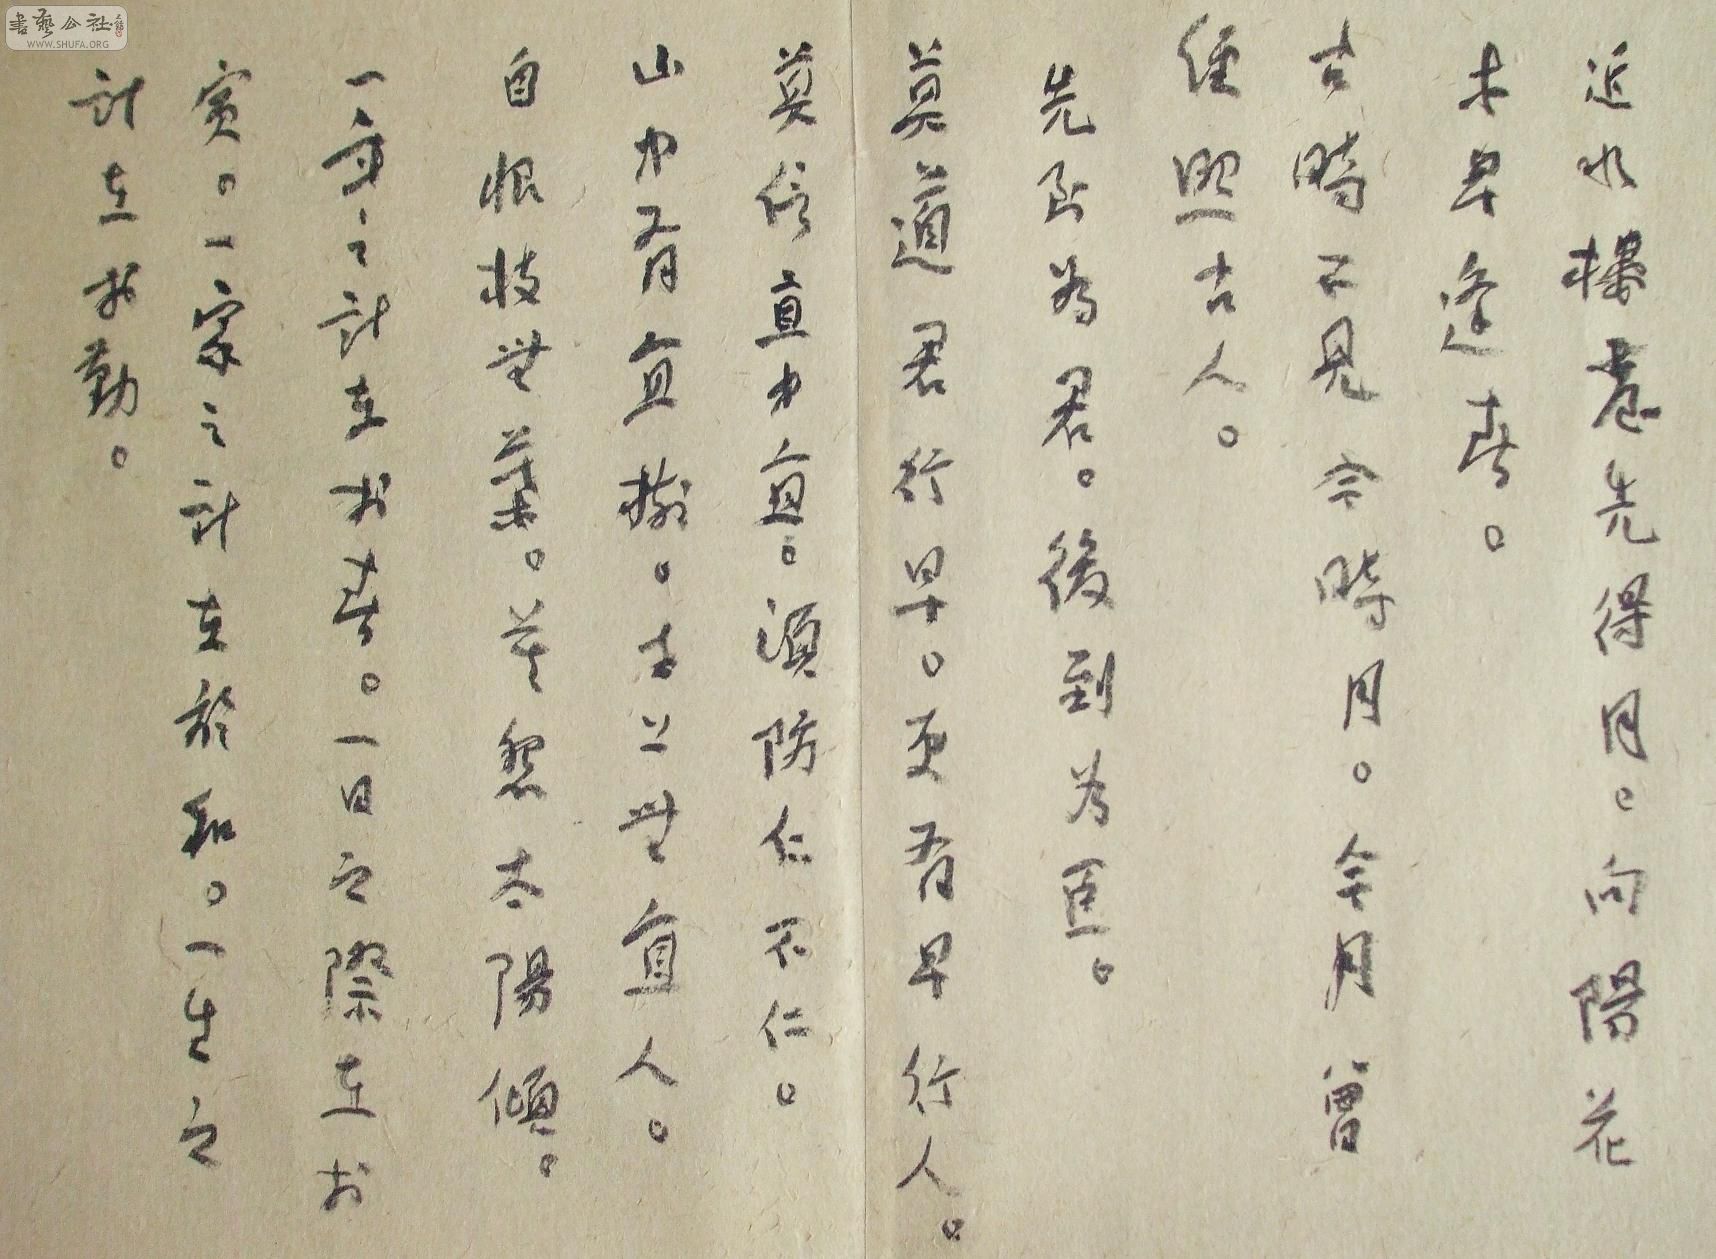 書藝公社
WWW.SHUFA.ORG
近水樓臺先得月。向陽花
木早逢春。
古時不見今時月。今月曾
經照古人。
先到為君。後到為臣。
莫道君行早。更有早行人。
莫信直中直。須防仁不仁。
山中有直樹。世上無直人。
自恨枝無葉。莫怨太陽傾。
一年之計在於春。一日之際在於
寅。一家之計在於和。一生之
計在於勤。